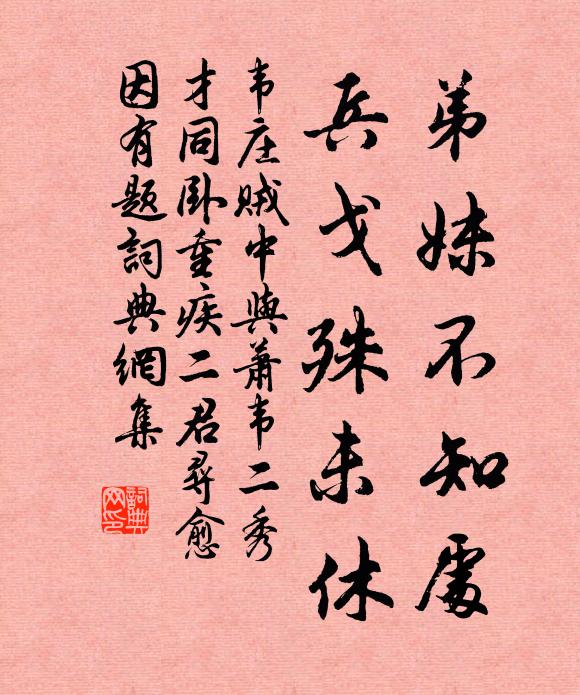 弟妹不知處
兵戈殊未休
韦庄贼中與蕭韦二秀
才同卧重疾二君尋愈
因有题詞典網集
詞典
网印